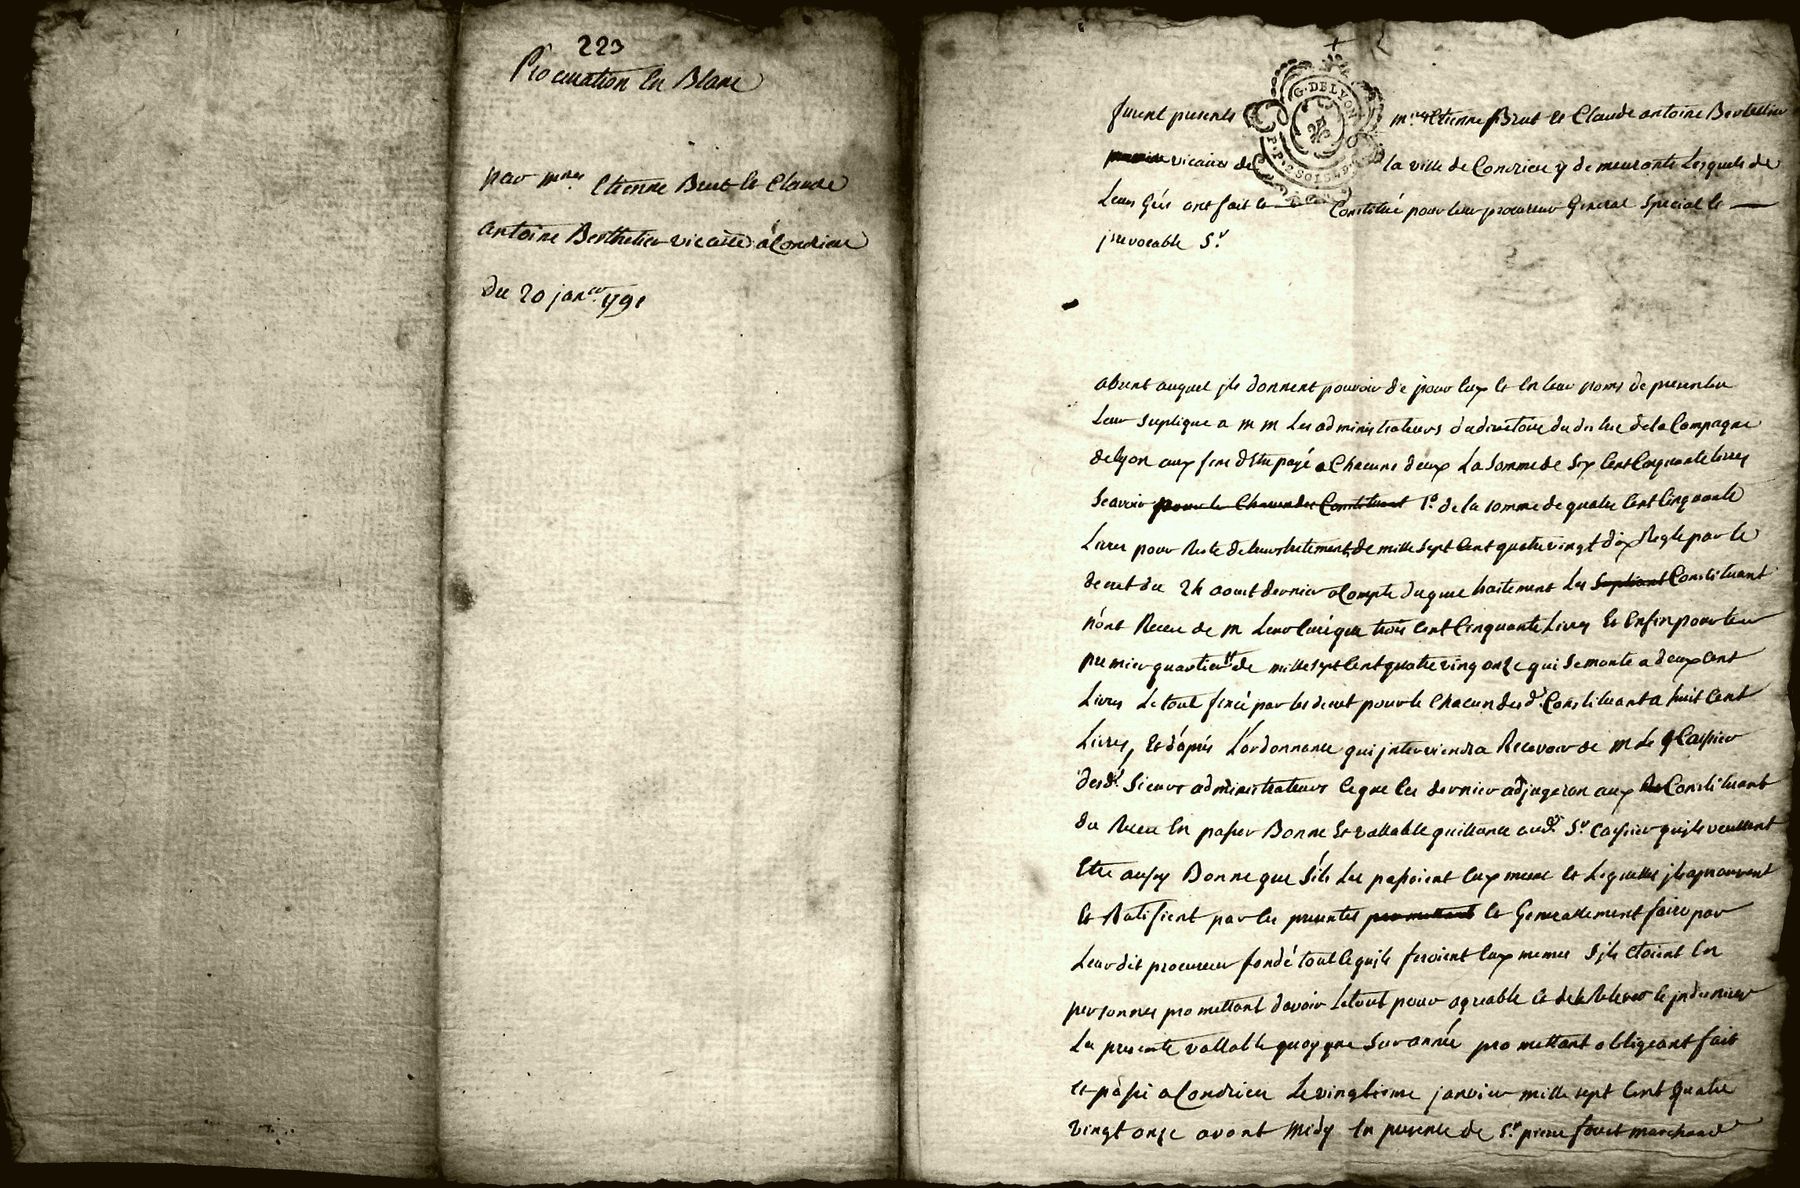 223
Procuration En Blanc
par mrs Etienne Brut et Claude
antoine Berthelier vicaire à Condrieu
du 20 janer 1791
G. DE LYON
P.P. 2 SOLS 4 D.
furent presents mrs Etienne Brut et Claude antoine Berthelier
vicaires de la ville de Condrieu y demeurants Lesquels de
Leurs Grés ont fait et Constitué pour leur procureur General Special et
jrrevocable Sr
absent auquel jls donnent pouvoir de pour Eux et En leur noms de presenter
Leur Suplique a m m Les administrateurs du directoire du district de la Campagne
de lyon aux fins d'Etre payé a Chacuns d'eux La Somme de Six Cent Cinquante livres
Scavoir pour le Chacun des Constituant 1o. de la somme de quatre Cent Cinquante
Livres pour Reste de leurs traitement de mille sept Cent quatre vingt dix Reglé par le
decret du 24 aoust dernier a Compte duquel traitement Les Constituant
n'ont Receu de m Leur Curé que trois Cent Cinquante Livres Et Enfin pour leur
premier quartier de mille sept Cent quatre ving onze qui Se monte a deux Cent
Livres Le tout fixé par les decret pour le Chacun des dt Constituant a huit Cent
Livres, Et d'après L'ordonnance qui jnterviendra Recevoir de m Le Caissier
des dt Sieurs administrateurs Ce que Ces dernier adjugeron aux Constituant
du Receu En passer Bonne Et vallable quittance audt Sr Caissier qu'jls veullent
Etre aussy Bonne que S'ils Les passoient Eux meme Et Lesquelles jls aprouvent
Et Ratifient par Les presentes promettant Et Generallement faire par
Leur dit procureur fondé tout Ce qu'jls feroient Eux memes S'jls Etoient En
personnes promettant d'avoir Le tout pour agreable Et de le Relever Et jndemniser
La presente vallable quoyque Surannée promettant obligeant fait
Et passé a Condrieu Le vingtieme janvier mille sept Cent quatre
vingt onze avant Midy En presence de Sr pierre marchand